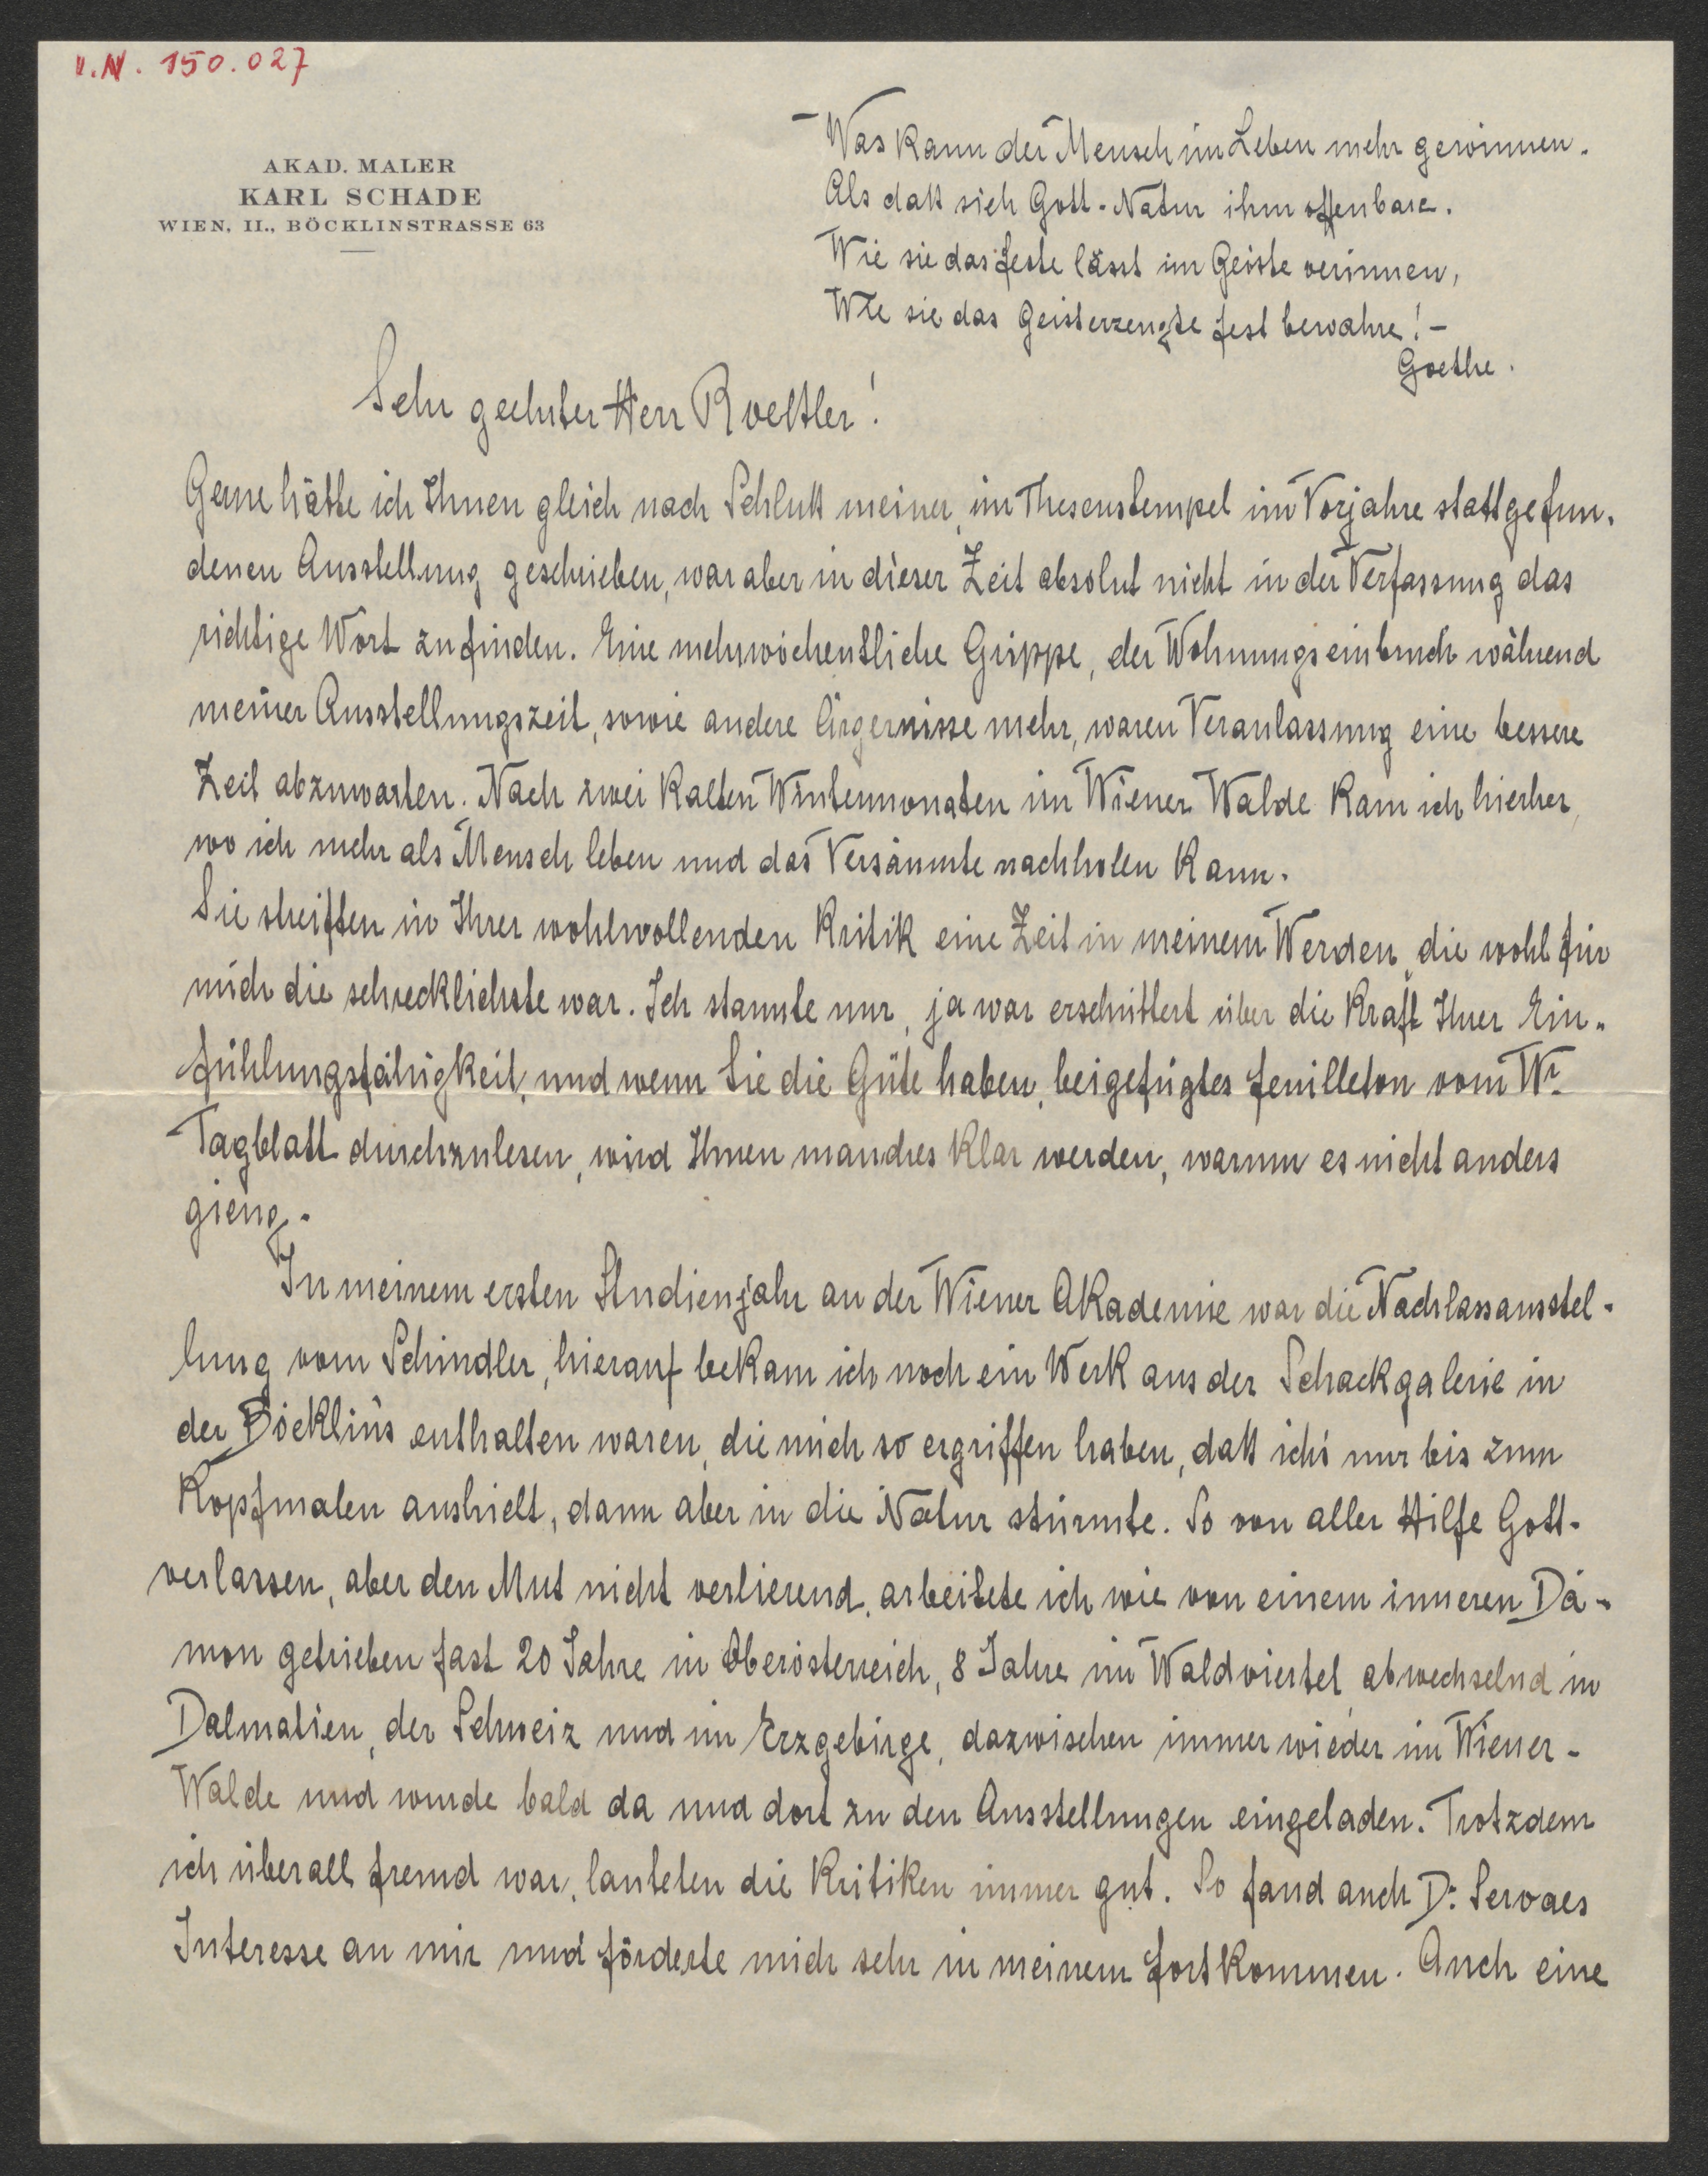 I.N. 150.027
AKAD. MALER
KARL SCHADE
WIEN, II., BÖCKLINSTRASSE 63
– Was kann der Mensch im Leben mehr gewinnen.
Als daß sich Gott-Natur ihm offenbare.
Wie sie das feste lässt im Geiste verinnen,
Wie sie das Geisterzeugte fest bewahre! –
Goethe.
Sehr geehrter Herr Roeßler!
Gerne hätte ich Ihnen gleich nach Schluß meiner, im Thesenstempel im Vorjahre stattgefun-
denen Ausstellung geschrieben, war aber in dieser Zeit absolut nicht in der Verfassung das
richtige Wort zu finden. Eine mehrwöchentliche Grippe, der Wohnungseinbruch während
meiner Ausstellungszeit, sowie andere Ärgernisse mehr, waren Veranlassung eine bessere
Zeit abzuwarten. Nach zwei kalten Wintermonaten im Wiener Walde kam ich hierher,
wo ich mehr als Mensch leben und das Versäumte nachholen kann.
Sie streiften in Ihrer wohlwollenden Kritik eine Zeit in meinem Werden, die wohl für
mich die schrecklichste war. Ich staunte nur, ja war erschüttert über die Kraft Ihrer Ein-
fühlungsfähigkeit, und wenn Sie die Güte haben, beigefügtes Feuilleton vom Wr.
Tagblatt durchzulesen, wird Ihnen manches klar werden, warum es nicht anders
gieng.
In meinem ersten Studienjahr an der Wiener Akademie war die Nachlassausstel-
lung vom Schindler, hierauf bekam ich noch ein Werk aus der Schackgalerie in
der Böcklin's enthalten waren, die mich so ergriffen haben, daß ich's nur bis zum
Kopfmalen aushielt, dann aber in die Natur stürmte. So von aller Hilfe Gott-
verlassen, aber den Mut nicht verlierend, arbeitete ich wie von einem inneren Dä-
mon getrieben fast 20 Jahre in Oberösterreich, 8 Jahre im Waldviertel, abwechselnd in
Dalmatien, der Schweiz und im Erzgebirge, dazwischen immer wieder im Wiener-
Walde und wurde bald da und dort zu den Ausstellungen eingeladen. Trotzdem
ich überall fremd war, lauteten die Kritiken immer gut. So fand auch Dr. Servaes
Interesse an mir und förderte mich sehr in meinem Fortkommen. Auch eine